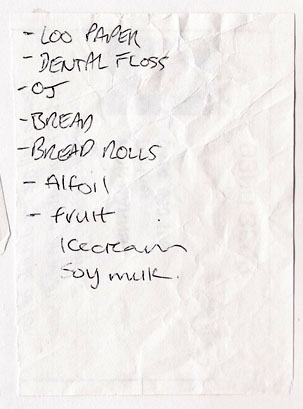 - LOO PAPER
- DENTAL FLOSS
- OJ
- BREAD
- BREAD ROLLS
- Alfoil
- fruit
Icecream
Soy milk.